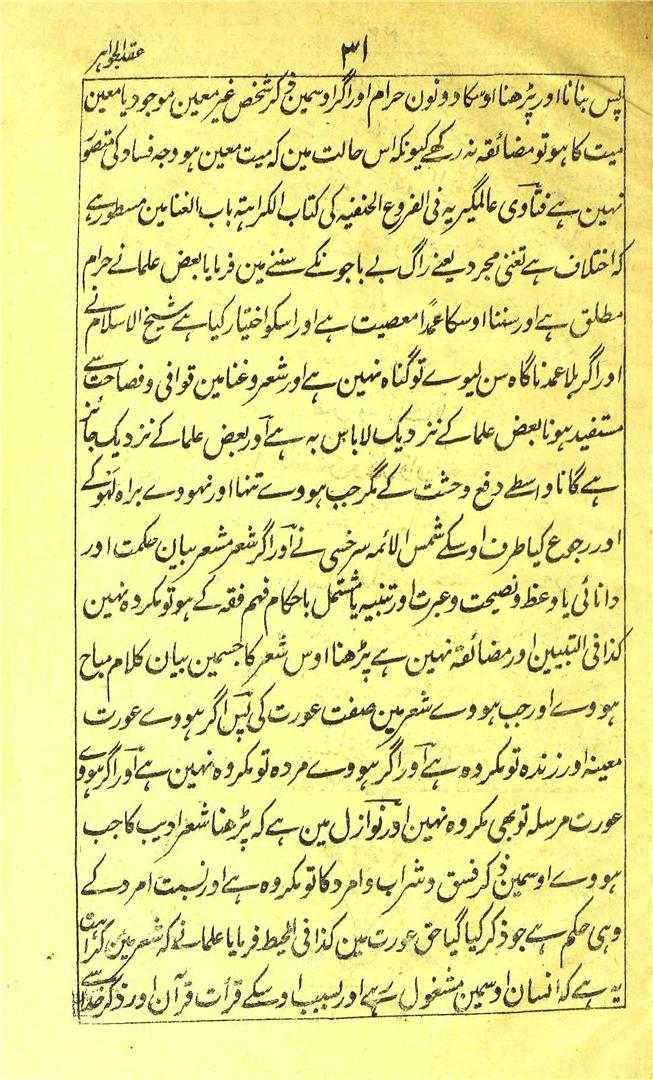 ۳۱
عقد الجواہر
پس بنانا اور پڑھنا اوسکا دونون حرام اور اگر اوسمین ذکر شخص غیر معین موجود یا معین
میت کا ہو تو مضائقہ نہ رکھے کیونکہ اس حالت مین کہ میت معین ہو وجہ فساد کی متصور
نہین ہے فتاوی عالمگیریہ فی الفروع الحنفیہ کی کتاب الکراہتہ باب الغنا مین مسطور ہے
کہ اختلاف ہے تغنی مجرد یعنے راگ بے باجونکے سننے مین فرمایا بعض علمانے حرام
مطلق ہے اور سننا اوسکا عمداً معصیت ہے اور اسکو اختیار کیا ہے شیخ الاسلام نے
اور اگر بلا عمد ناگاہ سن لیوے تو گناہ نہین ہے اور شعر و غنا مین قوافی و فصاحت سے
مستفید ہونا بعض علما کے نزدیک لا باس بہ ہے اور بعض علما کے نزدیک جائز
ہے گانا واسطے دفع وحشت کے مگر جب ہووے تنہا اور نہووے براہ لہو کے
اور رجوع کیا طرف اوسکے شمس الائمہ سرخسی نے اور اگر شعر مشعر ببیان حکمت اور
دانائی یا وعظ و نصیحت و عبرت اور تنبیہ یا مشتمل با حکام فہم فقہ کے ہو تو مکروہ نہین
کذا فی التبیین اور مضائقہ نہین ہے پڑھنا اوس شعر کا جسمین بیان کلام مباح
ہووے اور جب ہووے شعر مین صفت عورت کی پس اگر ہووے عورت
معینہ اور زندہ تو مکروہ ہے اور اگر ہووے مردہ تو مکروہ نہین ہے اور اگر ہووے
عورت مرسلہ تو بھی مکروہ نہین اور نوازل مین ہے کہ پڑھنا شعر ادیب کا جب
ہووے اوسمین ذکر فسق و شراب و امرد کا تو مکروہ ہے اور نسبت امرد کے
وہی حکم ہے جو ذکر کیا گیا حق عورت مین کذا فی المحیط فرمایا علمانے کہ شعر مین کراہت
یہ ہے کہ انسان اوسمین مشغول رہے اور بسبب اوسکے قرأت قرآن اور ذکر خدا سے